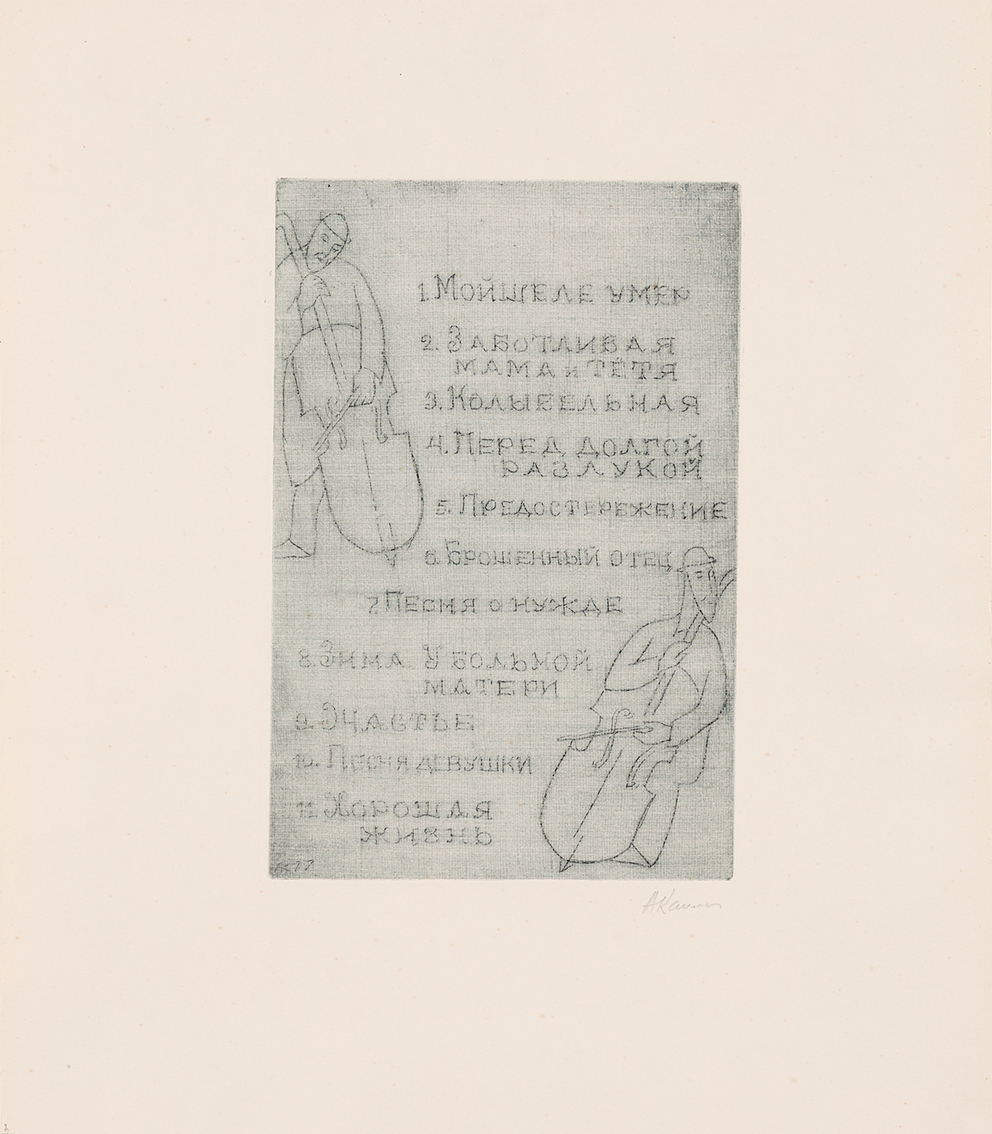 1. Мойшеле умер
2. Заботливая
мама и тётя
3. Колыбельная
4. Перед долгой
разлукой
5. Предостережение
6. Брошенный отец
7. Песня о нужде
8. Зима
У больной
матери
9. Счастье
10. Песня девушки
11. Хорошая
жизнь
77